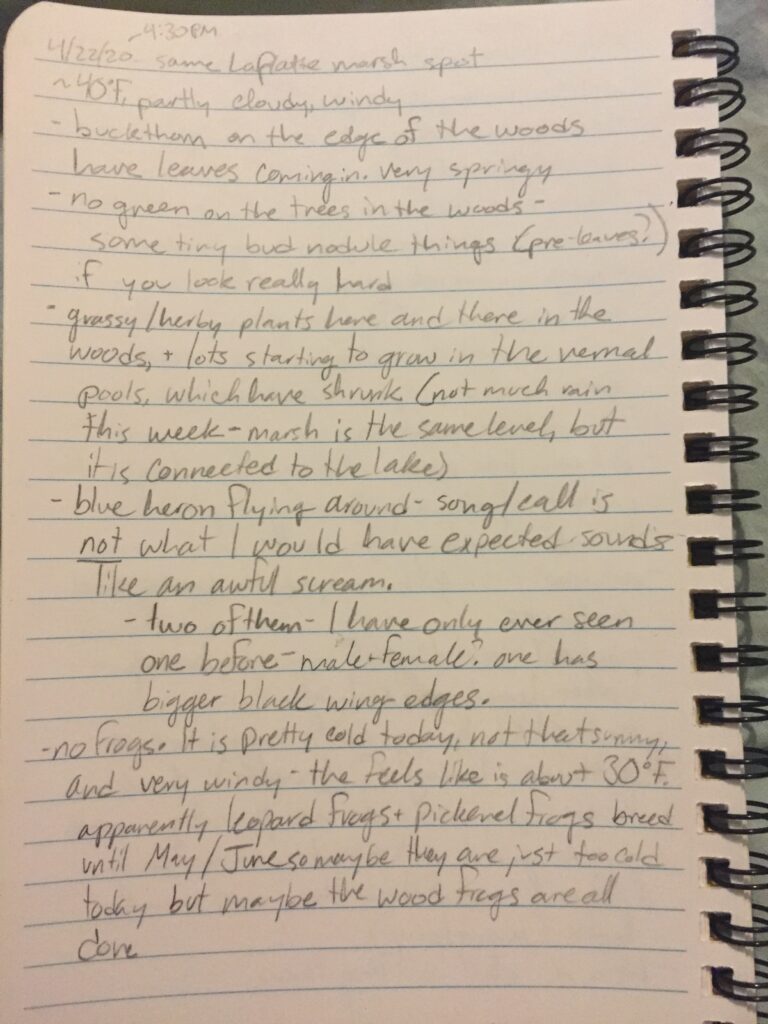 ~4:30PM
4/22/20 same LaPlatte marsh spot
~40°F, partly cloudy, windy
- buckthorn on the edge of the woods
have leaves coming in. very springy
- no green on the trees in the woods -
some tiny bud nodule things (pre-leaves?)
if you look really hard
- grassy/herby plants here and there in the
woods, + lots starting to grow in the vernal
pools, which have shrunk (not much rain
this week - marsh is the same level, but
it is connected to the lake)
- blue heron flying around - song/call is
not what I would have expected. sounds
like an awful scream.
- two of them - I have only ever seen
one before - male + female? one has
bigger black wing edges.
- no frogs. It is pretty cold today, not that sunny,
and very windy - the feels like is about 30°F.
apparently leopard frogs + pickerel frogs breed
until May/June so maybe they are just too cold
today but maybe the wood frogs are all
done